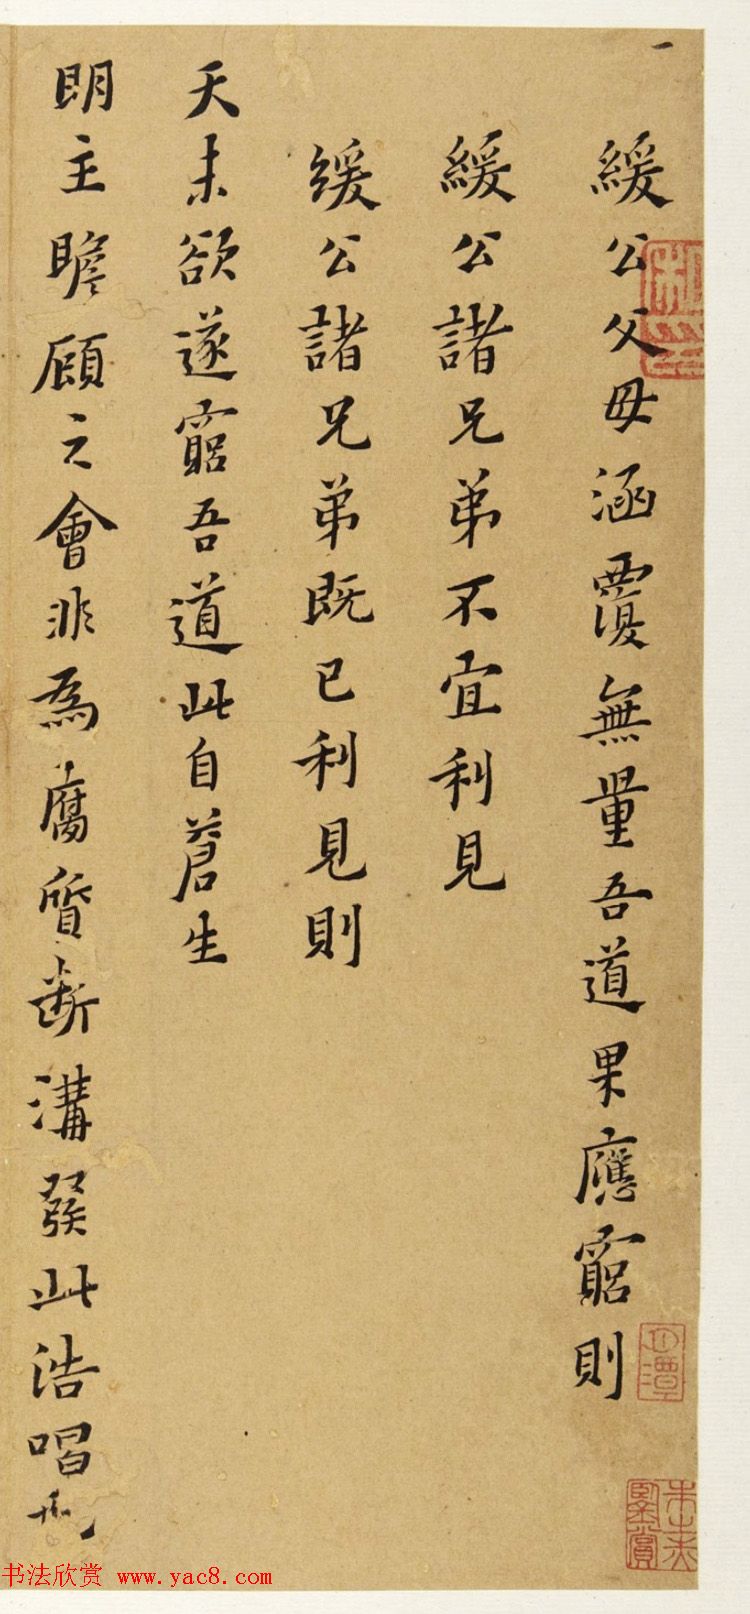 一
緩公父母涵覆無量吾道果應竆則
緩公諸兄弟不宜利見
緩公諸兄弟既已利見則
天未欲遂竆吾道此自蒼生
明主瞻顧之會非為腐質斷溝發此浩唱
鑒賞
书法欣赏 www.yac8.com